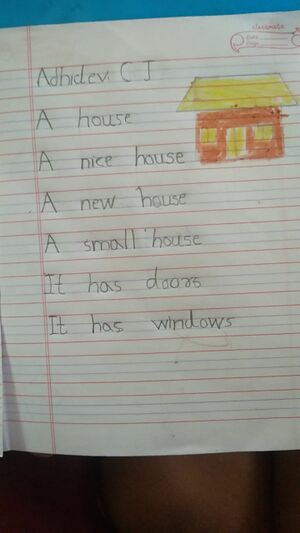 classmate
Date
Page
Adhidev. C J
A house
A nice house
A new house
A small house
It has doors
It has windows